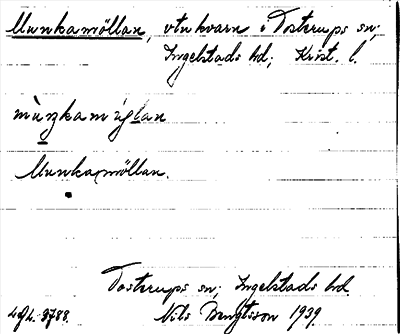 Munkamöllan, vtnkvarn i Tosterups sn;
Ingelstads hd; Krist. l.
mùnkamöllan
Munkamöllan.
Tosterups sn; Ingelstads hd.
Nils Bengtsson 1939